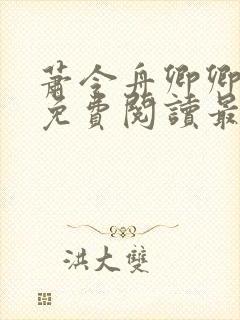 蕭令舟卿卿
免費閱讀最
洪大雙